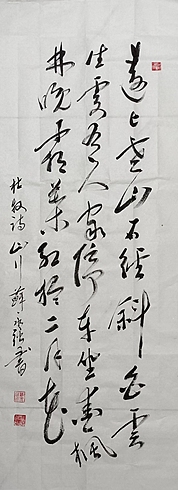 遠上寒山石徑斜白雲
生處有人家停車坐愛楓
林晚霜葉紅於二月花
杜牧詩山行 薛書